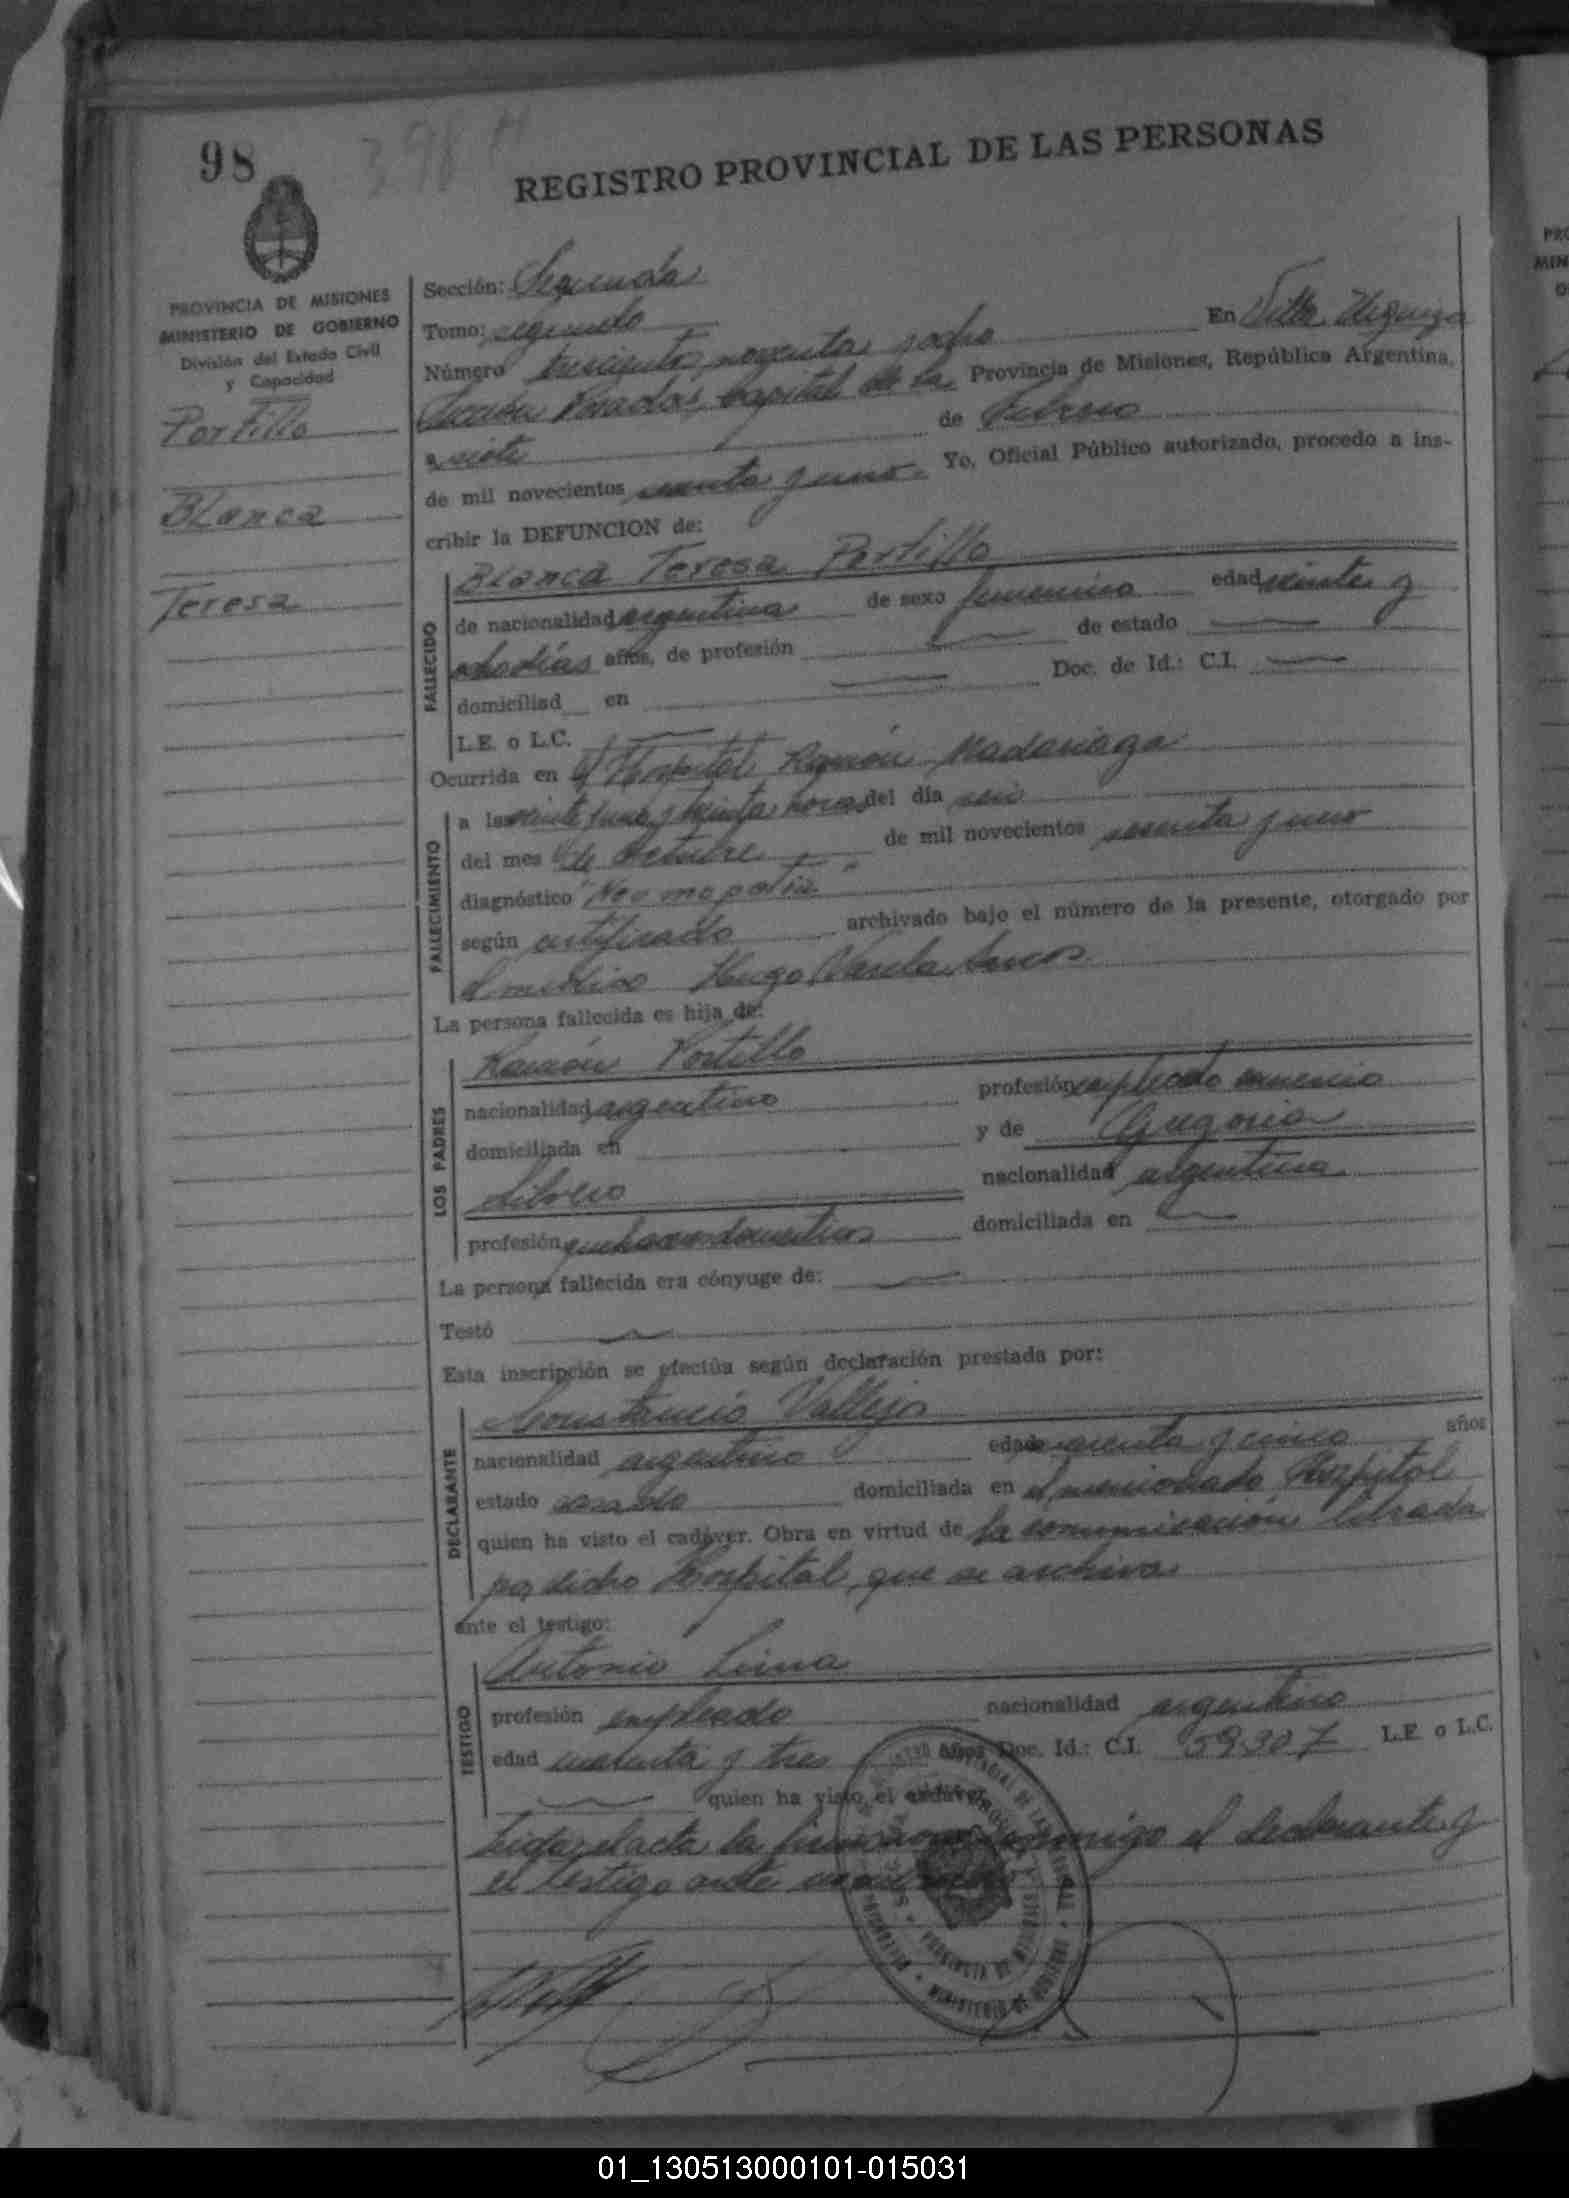 98
398 H
REGISTRO PROVINCIAL DE LAS PERSONAS
PROVINCIA DE MISIONES
MINISTERIO DE GOBIERNO
División del Estado Civil
y Capacidad
Portillo
Blanca
Teresa
Sección: Segunda
Tomo: segundo
Número trescientos noventa y ocho En Villa Urquiza
Posadas, capital de la Provincia de Misiones, República Argentina,
a siete de
de mil novecientos sesenta y uno. Yo, Oficial Público autorizado, procedo a ins-
cribir la DEFUNCION de:
FALLECIDO
Blanca Teresa Portillo
de nacionalidad argentina de sexo femenino edad veinte y
ocho días años, de profesión — de estado —
domiciliad en — Doc. de Id.: C.I. —
L.E. o L.C. —
Ocurrida en el Hospital Ramón Madariaga
FALLECIMIENTO
a las veinte y una y treinta horas del día seis
del mes de octubre de mil novecientos sesenta y uno
diagnóstico "Neomopatia"
según certificado archivado bajo el número de la presente, otorgado por
el médico Hugo Varela
La persona fallecida es hija de:
LOS PADRES
Ramón Portillo
nacionalidad argentino profesión empleado comercio
domiciliada en y de Gregoria
nacionalidad argentina
profesión quehaceres domésticos domiciliada en —
La persona fallecida era cónyuge de: —
Testó —
Esta inscripción se efectúa según declaración prestada por:
DECLARANTE
Constancio Vallejos
nacionalidad argentino edad y cinco años
estado casado domiciliada en el mencionado Hospital
quien ha visto el cadáver. Obra en virtud de la comunicación librada
por dicho Hospital, que se archiva.
ante el testigo:
TESTIGO
Antonio Lima
profesión empleado nacionalidad argentino
edad cuarenta y tres años Doc. Id.: C.I. 59307 L.E. o L.C.
— quien ha visto el cadáver
Leida el acta la firmaron conmigo el declarante y
el testigo ante
PROVINCIA DE MISIONES
MINISTERIO DE GOBIERNO
01_130513000101-015031